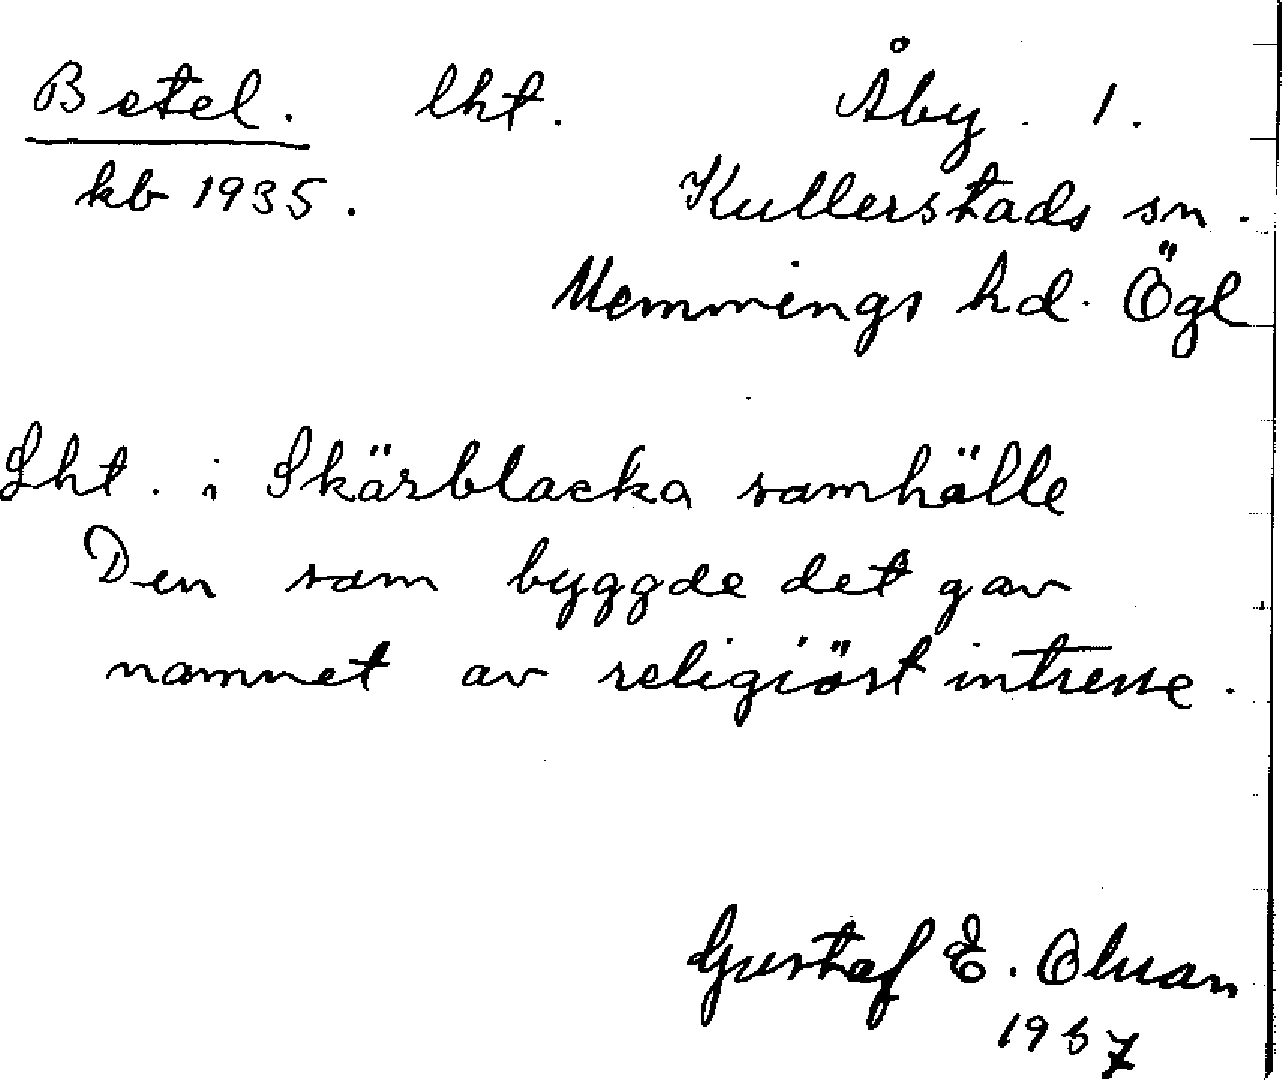 Betel. lht. Åby. 1.
kb 1935. Kullerstads sn.
Memmings hd. Ögl
Lht. i Skärblacka samhälle
Den som byggde det gav
namnet av religiöst intresse.
Gustaf E. Olsson